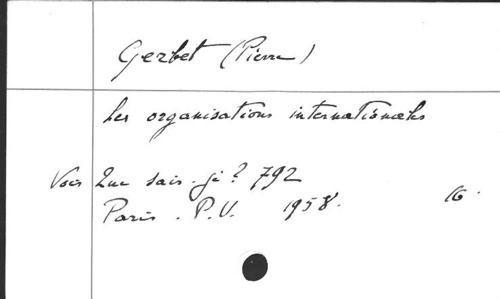 Gerbet (Pierre)
Les organisations internationales
Voir Que sais-je? 792
Paris. P.U. 1958. 16.